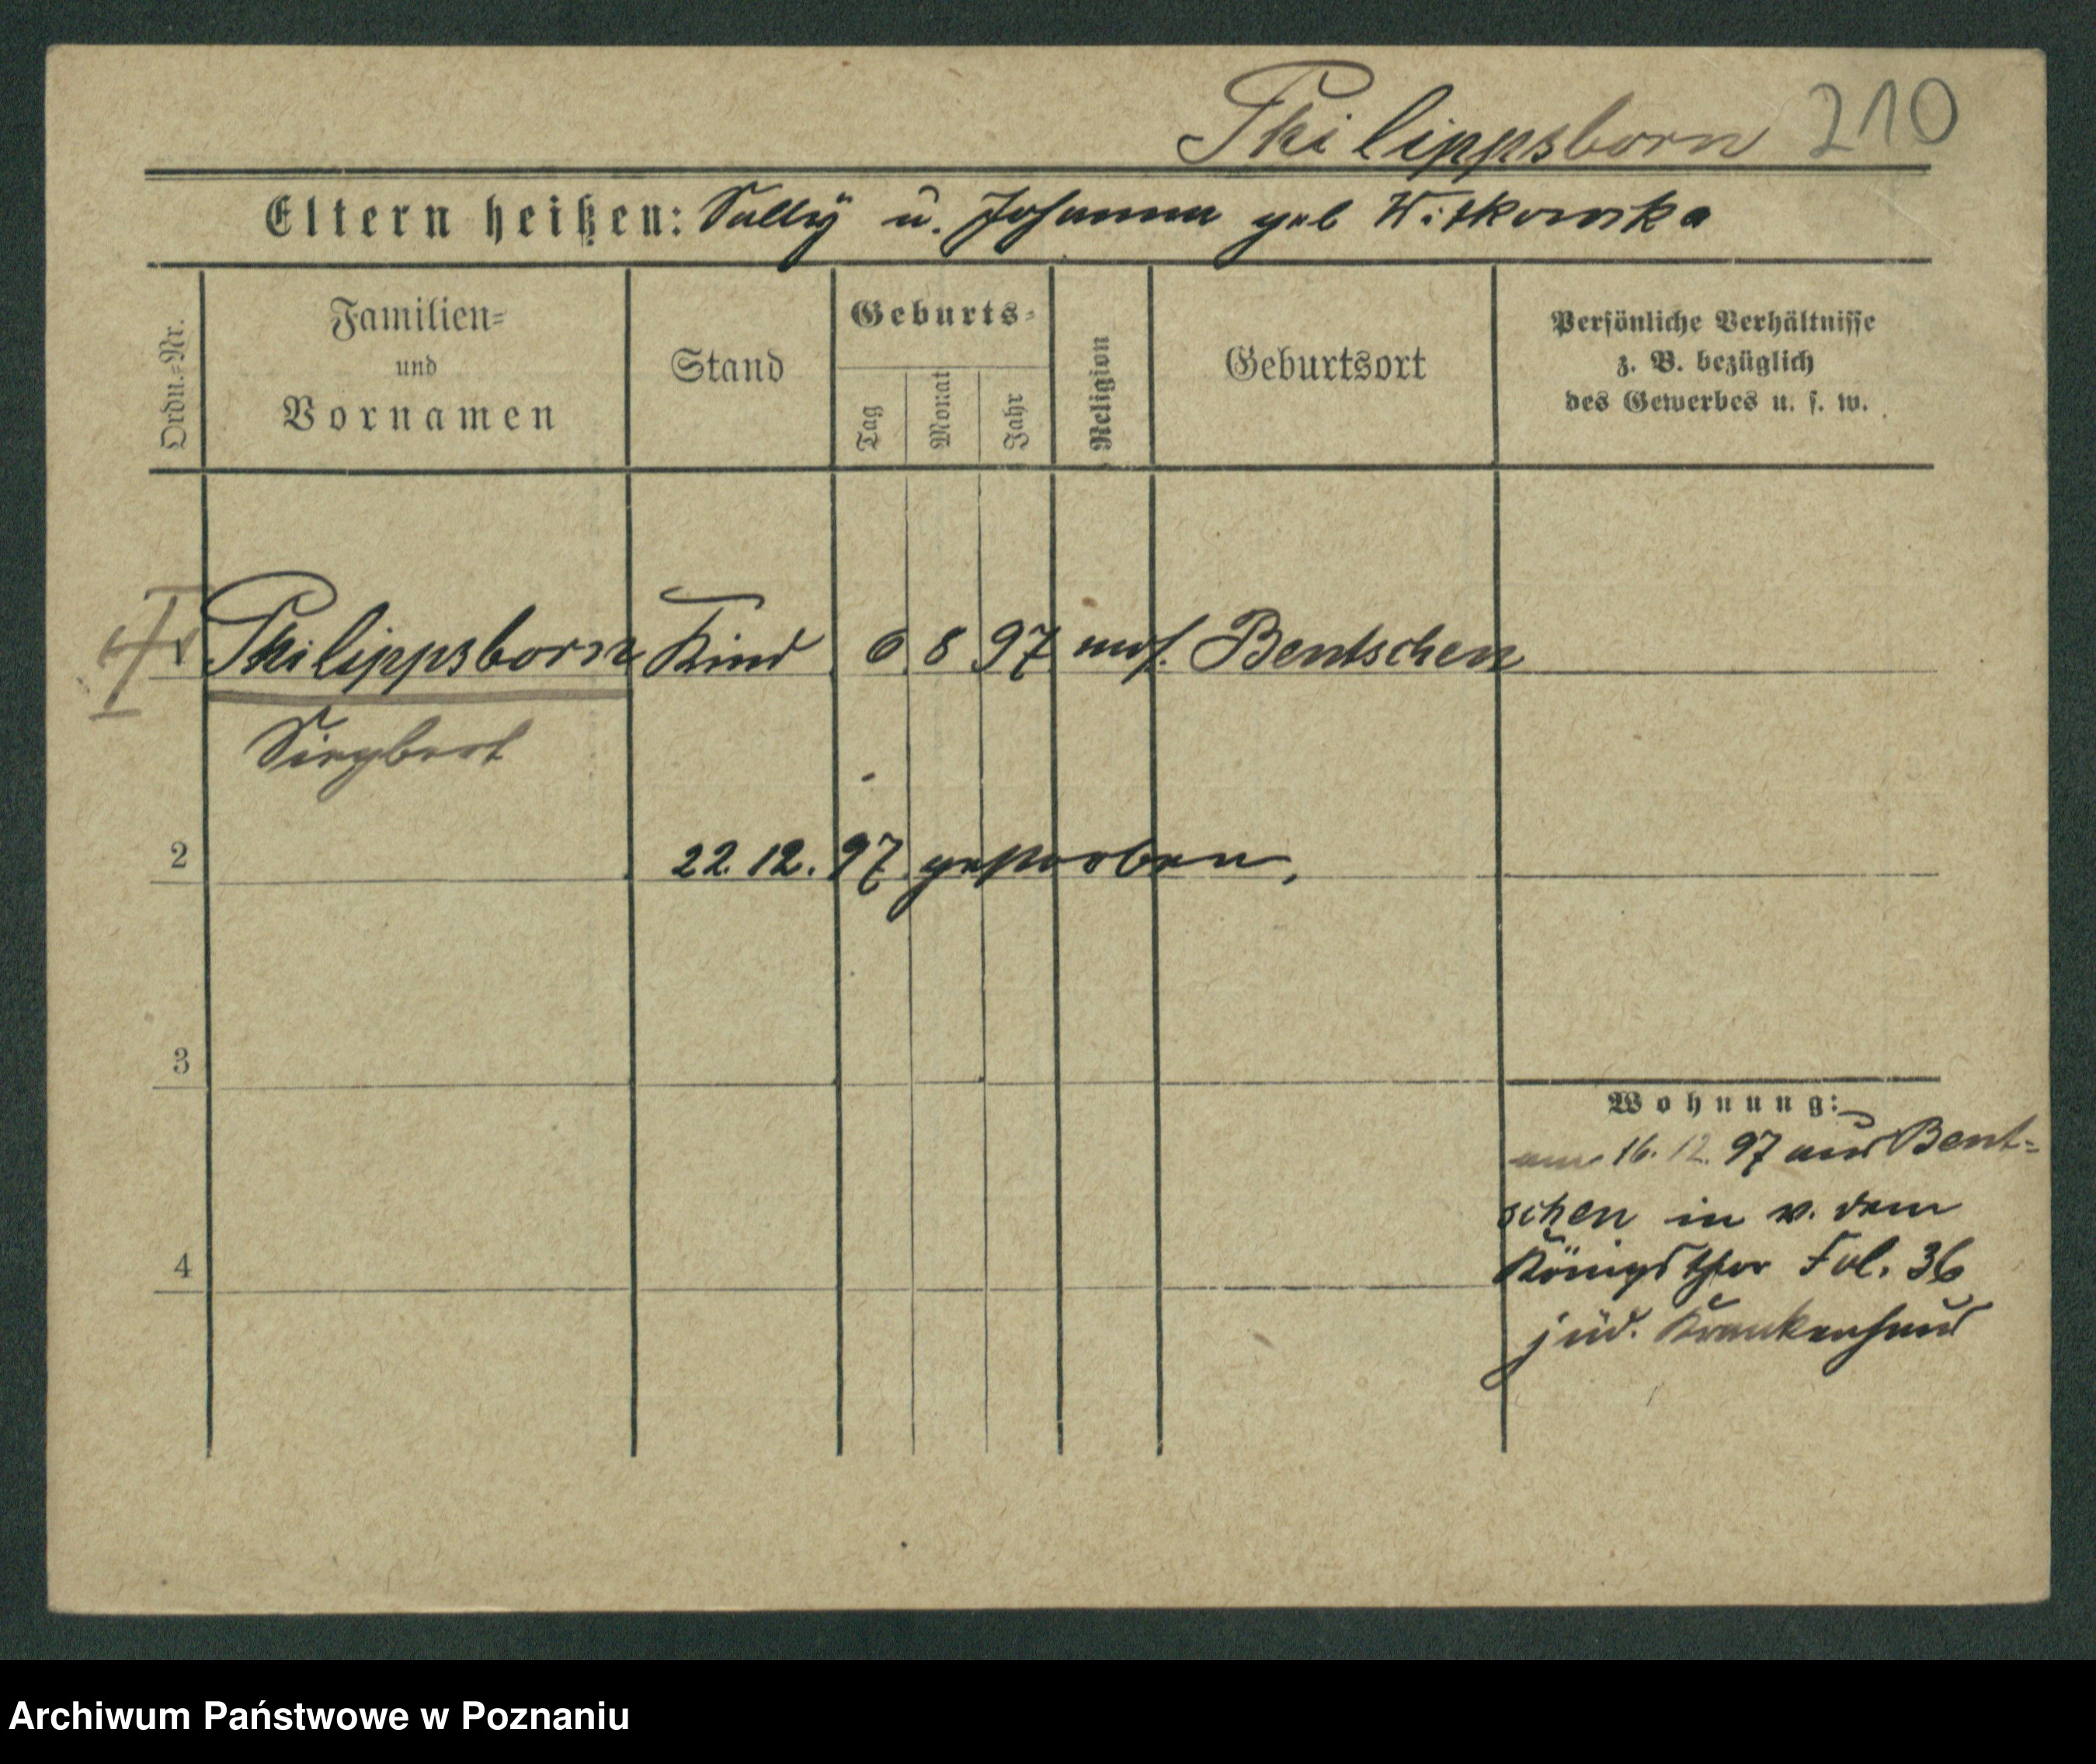 Philippsborn 210
Eltern heißen: Sally u. Johanna geb Witkowska
Ordn.=Nr.
Familien=
und
Vornamen
Stand
Geburts=
Tag
Monat
Jahr
Religion
Geburtsort
Persönliche Verhältnisse
z. B. bezüglich
des Gewerbes u. s. w.
1 Philippsborn Kind 6 8 97 mos. Bentschen
Siegbert
2 22.12.97 gestorben,
3
Wohnung:
16.12.97 aus Bent=
schen in v. dem
4 Königsthor Fol. 36
jüd. Krankenhaus
Archiwum Państwowe w Poznaniu